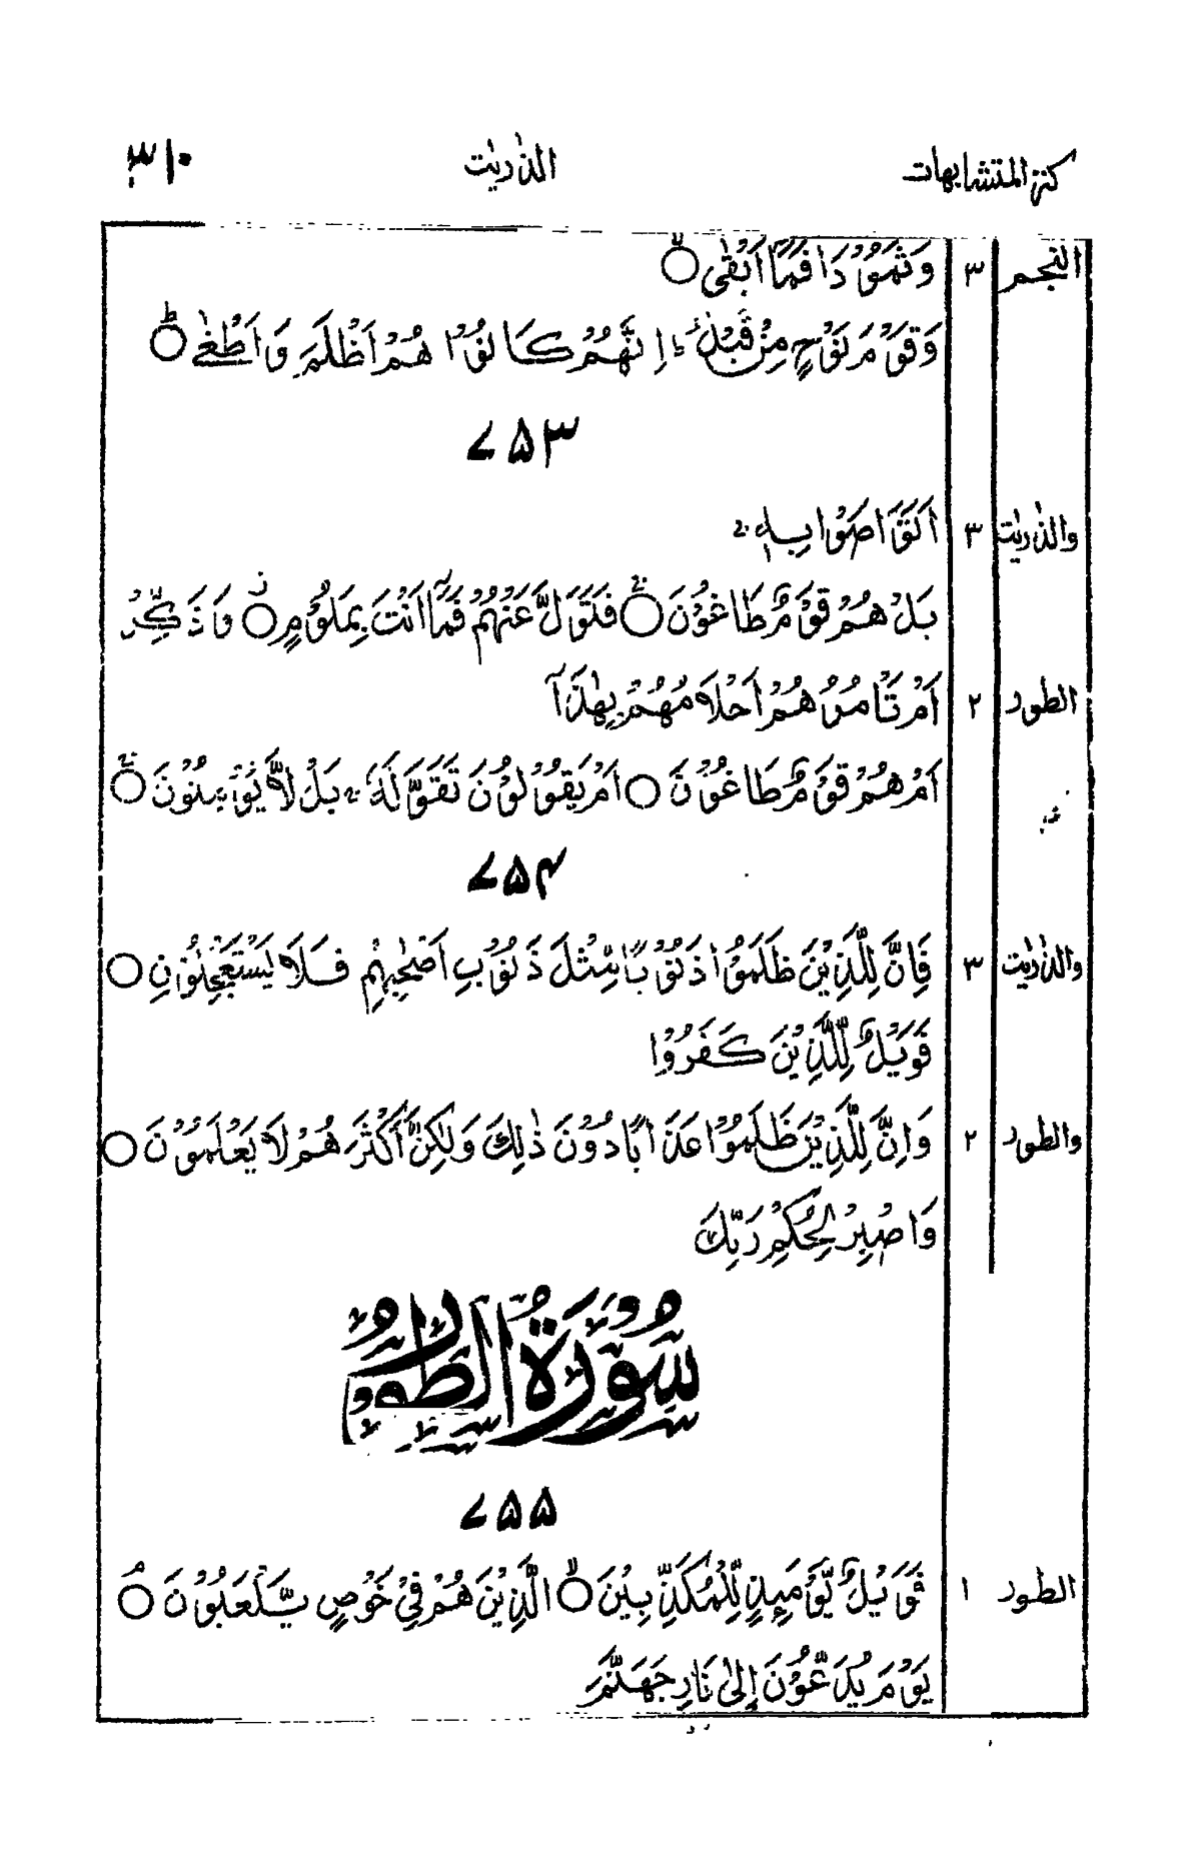 كنز المتشابهات الذّٰريٰت ٣١٠
النجم ٣ وَثَمُوْدَا۟ فَمَآ اَبْقٰى ○ۙ
وَقَوْمَ نُوْحٍ مِّنْ قَبْلُ ؕ اِنَّهُمْ كَانُوْا هُمْ اَظْلَمَ وَاَطْغٰى ○ؕ
٧٥٣
والذّٰريٰت ٣ اَتَوَاصَوْا بِهٖ ۚ
بَلْ هُمْ قَوْمٌ طَاغُوْنَ ○ۚ فَتَوَلَّ عَنْهُمْ فَمَآ اَنْتَ بِمَلُوْمٍ ○ۛ وَذَكِّرْ
الطور ٢ اَمْ تَاْمُرُهُمْ اَحْلَامُهُمْ بِهٰذَآ
اَمْ هُمْ قَوْمٌ طَاغُوْنَ ○ اَمْ يَقُوْلُوْنَ تَقَوَّلَهٗ ۚ بَلْ لَّا يُؤْمِنُوْنَ ○ۚ
٧٥٤
والذّٰريٰت ٣ فَاِنَّ لِلَّذِيْنَ ظَلَمُوْا ذَنُوْبًا مِّثْلَ ذَنُوْبِ اَصْحٰبِهِمْ فَلَا يَسْتَعْجِلُوْنِ ○
فَوَيْلٌ لِّلَّذِيْنَ كَفَرُوْا
والطور ٢ وَاِنَّ لِلَّذِيْنَ ظَلَمُوْا عَذَابًا دُوْنَ ذٰلِكَ وَلٰكِنَّ اَكْثَرَهُمْ لَا يَعْلَمُوْنَ ○
وَاصْبِرْ لِحُكْمِ رَبِّكَ
سُوْرَةُ الطُّوْرِ
٧٥٥
الطور ١ فَوَيْلٌ يَّوْمَئِذٍ لِّلْمُكَذِّبِيْنَ ○ۙ الَّذِيْنَ هُمْ فِيْ خَوْضٍ يَّلْعَبُوْنَ ○ۘ
يَوْمَ يُدَعُّوْنَ اِلٰى نَارِ جَهَنَّمَ